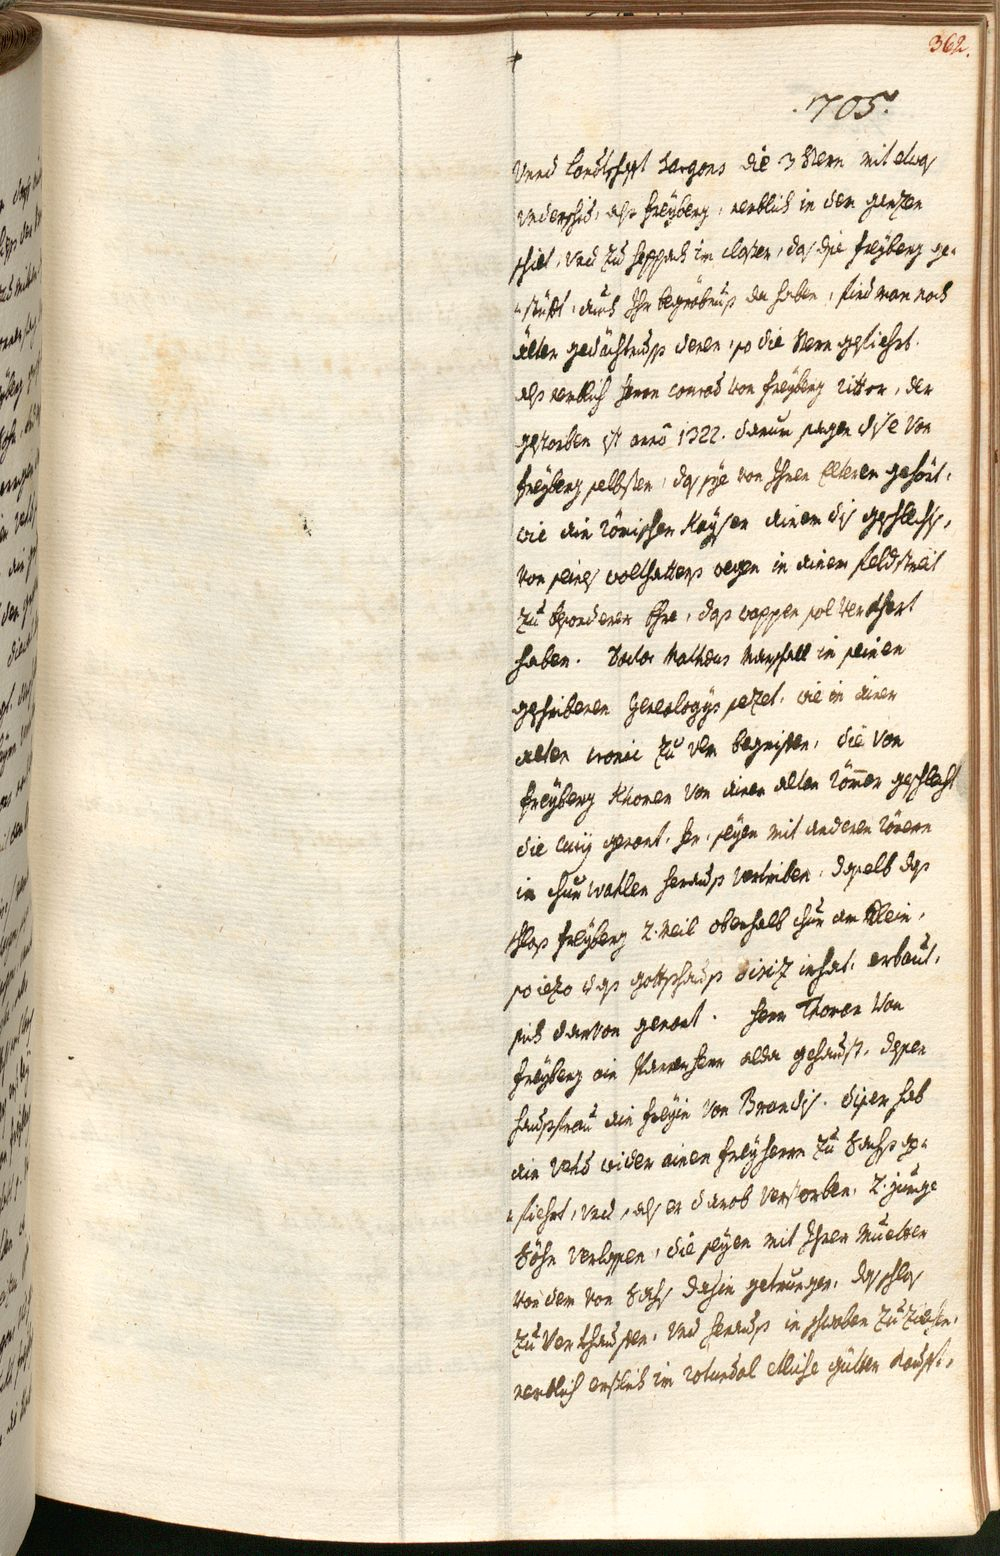 362.
705.
Unnd landtschafft Sargons die 3 Stern mit etwas
underschid, alß Freÿberg, nemblich in dem ganzen
schilt, und zu Heppach im closter, das die Freÿberg ge-
-stüfft, auch Ihr begräbnuß da haben, find man noch
älter gedächtnuß deren, so die Stern gefiehrt.
alß nemblich Herrn Conrad von Freÿberg Ritter, der
gestorben ist anno 1322. darum sagen dise von
Freÿberg selbsten, das sÿe von Ihren Elteren gehört,
wie ain Römischer Kaÿser ainem dis geschlechts,
von seines wolhaltens wegen in ainem feldstreit
zu besonderer Ehre, das wappen sol verehrt
haben. Doctor Matheus Marschall in seinen
geschribenen Genealogÿs sezet, wie in ainer
alten cronic zu Ulm begriffen, die von
Freÿberg khomen von ainem alten Römer geschlecht
die Curÿ genant, her, seÿen mit anderen Römern
in Churwahlen herauß vertriben, daselb das
schloß Freÿberg 2. meil oberhalb Chur am Rhein,
so iezo das gottshauß Disitz inhat, erbaut,
sich darvon genant. Herr Thoman von
Freÿberg ain Pannerherr alda gehaust, dessen
haußfrau ain Freÿin von Brandis. diser hab
ain Vehd wider ainen Freÿherrn zu Sachs ge-
-fiehrt, und, als er darob verstorben, 2. junge
Söhn verlassen, die seÿen mit Ihrer Muetter
von dem von Sachs dahin getrungen, das schlos
zu verkhauffen, und herauß in schwaben zu ziehen,
nemblich erstlich im Rotumbal etliche gütter kaufft,